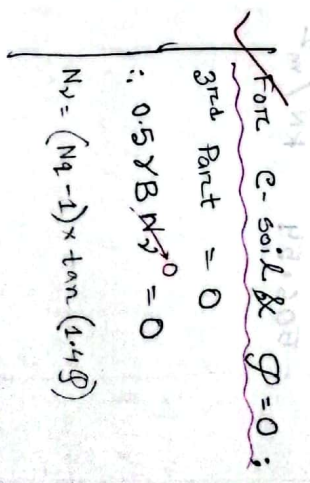 Forc C-soil & φ=0;
3rd Part = 0
∴ 0.5γBNγ → 0 = 0
Nγ = (Nq - 1) × tan (1.4φ)